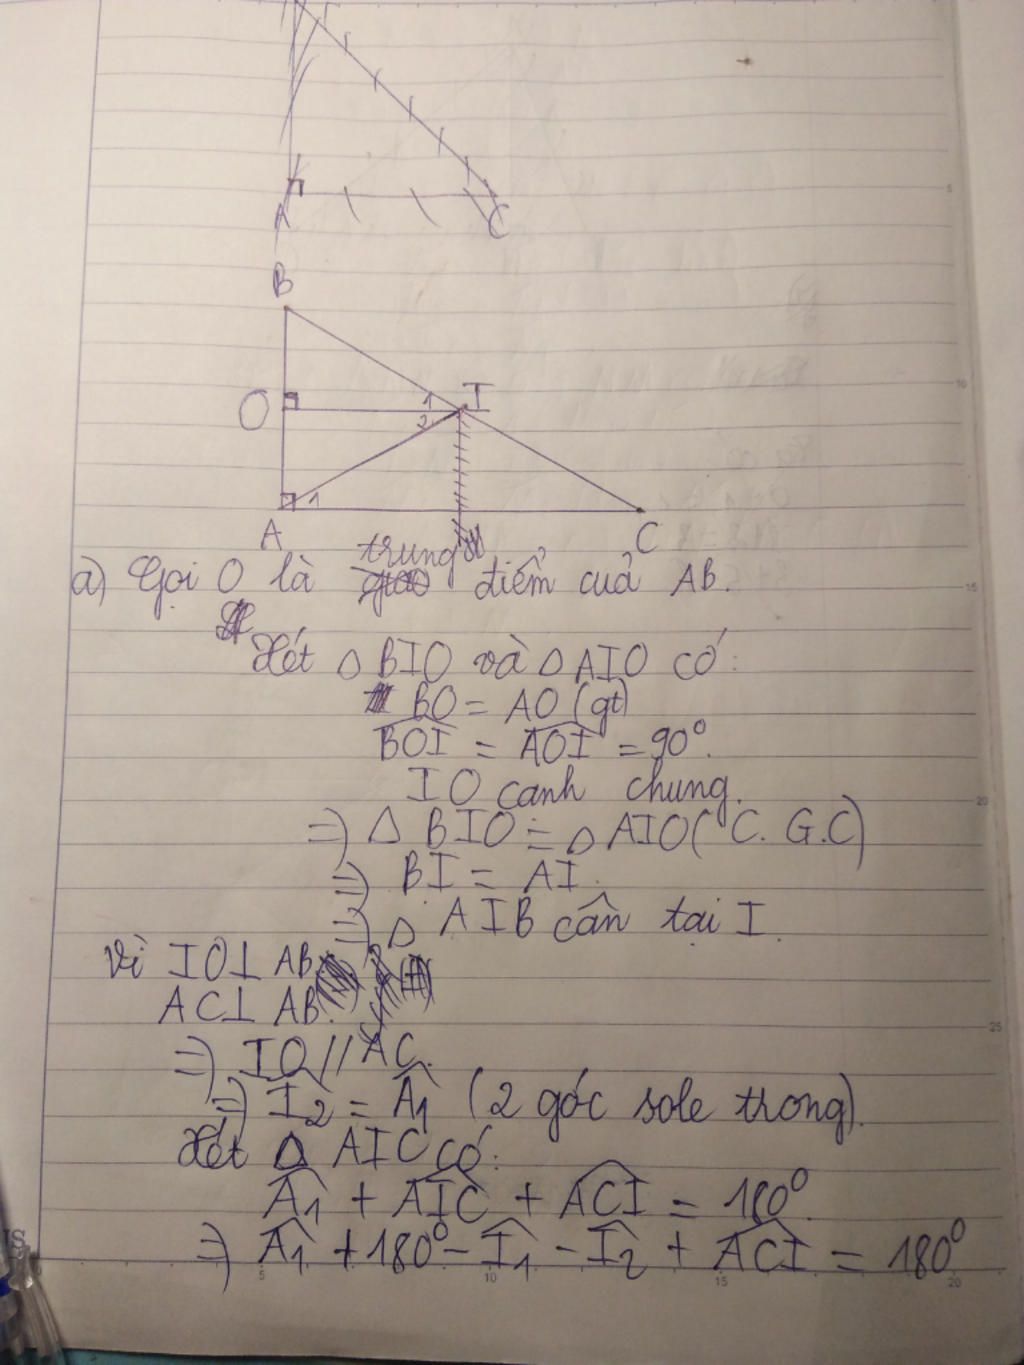 A
C
B
O
1
I
2
1
A
C
trung
a) Gọi O là giao điểm cuả AB.
Xét △ BIO và △ AIO có:
BO = AO (gt)
BOI = AOI = 90°.
IO canh chung.
=) △ BIO = △ AIO ( C. G.C)
=) BI = AI.
=) △ AIB cân tại I.
Vì IO⊥ AB
AC⊥ AB.
=) IO // AC.
=) I2 = A1 (2 góc sole trong).
Xét △ AIC có:
A1 + AIC + ACI = 180°
=) A1 + 180° - I1 - I2 + ACI = 180°
5
10
15
20
25
5
10
15
20